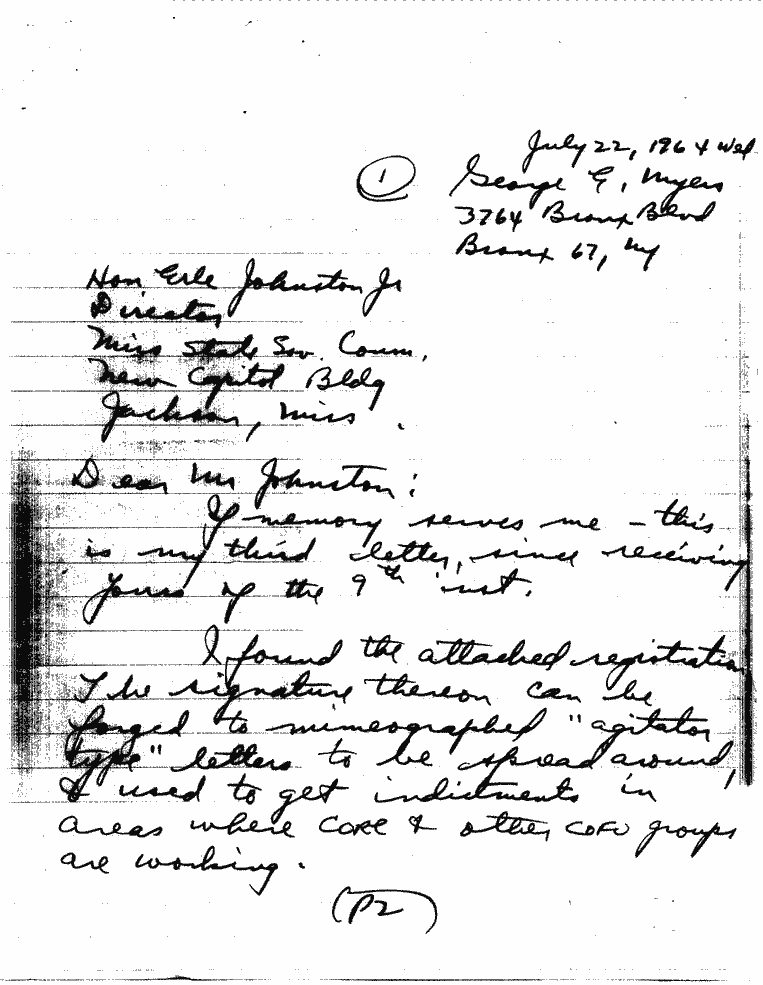 July 22, 1964 Wed
1
George E, Myers
3764 Bronx Blvd
Bronx 67, NY
Hon Erle Johnston Jr
Director
Miss State Sov. Comm.
New Capitol Bldg
Jackson, Miss.
Dear Mr Johnston:
If memory serves me - this
is my third letter, since receiving
yours of the 9th inst.
I found the attached registration
The signature thereon can be
forged to mimeographed "agitator
type" letters to be spread around,
& used to get indictments in
areas where CORE & other COFO groups
are working.
(P2)